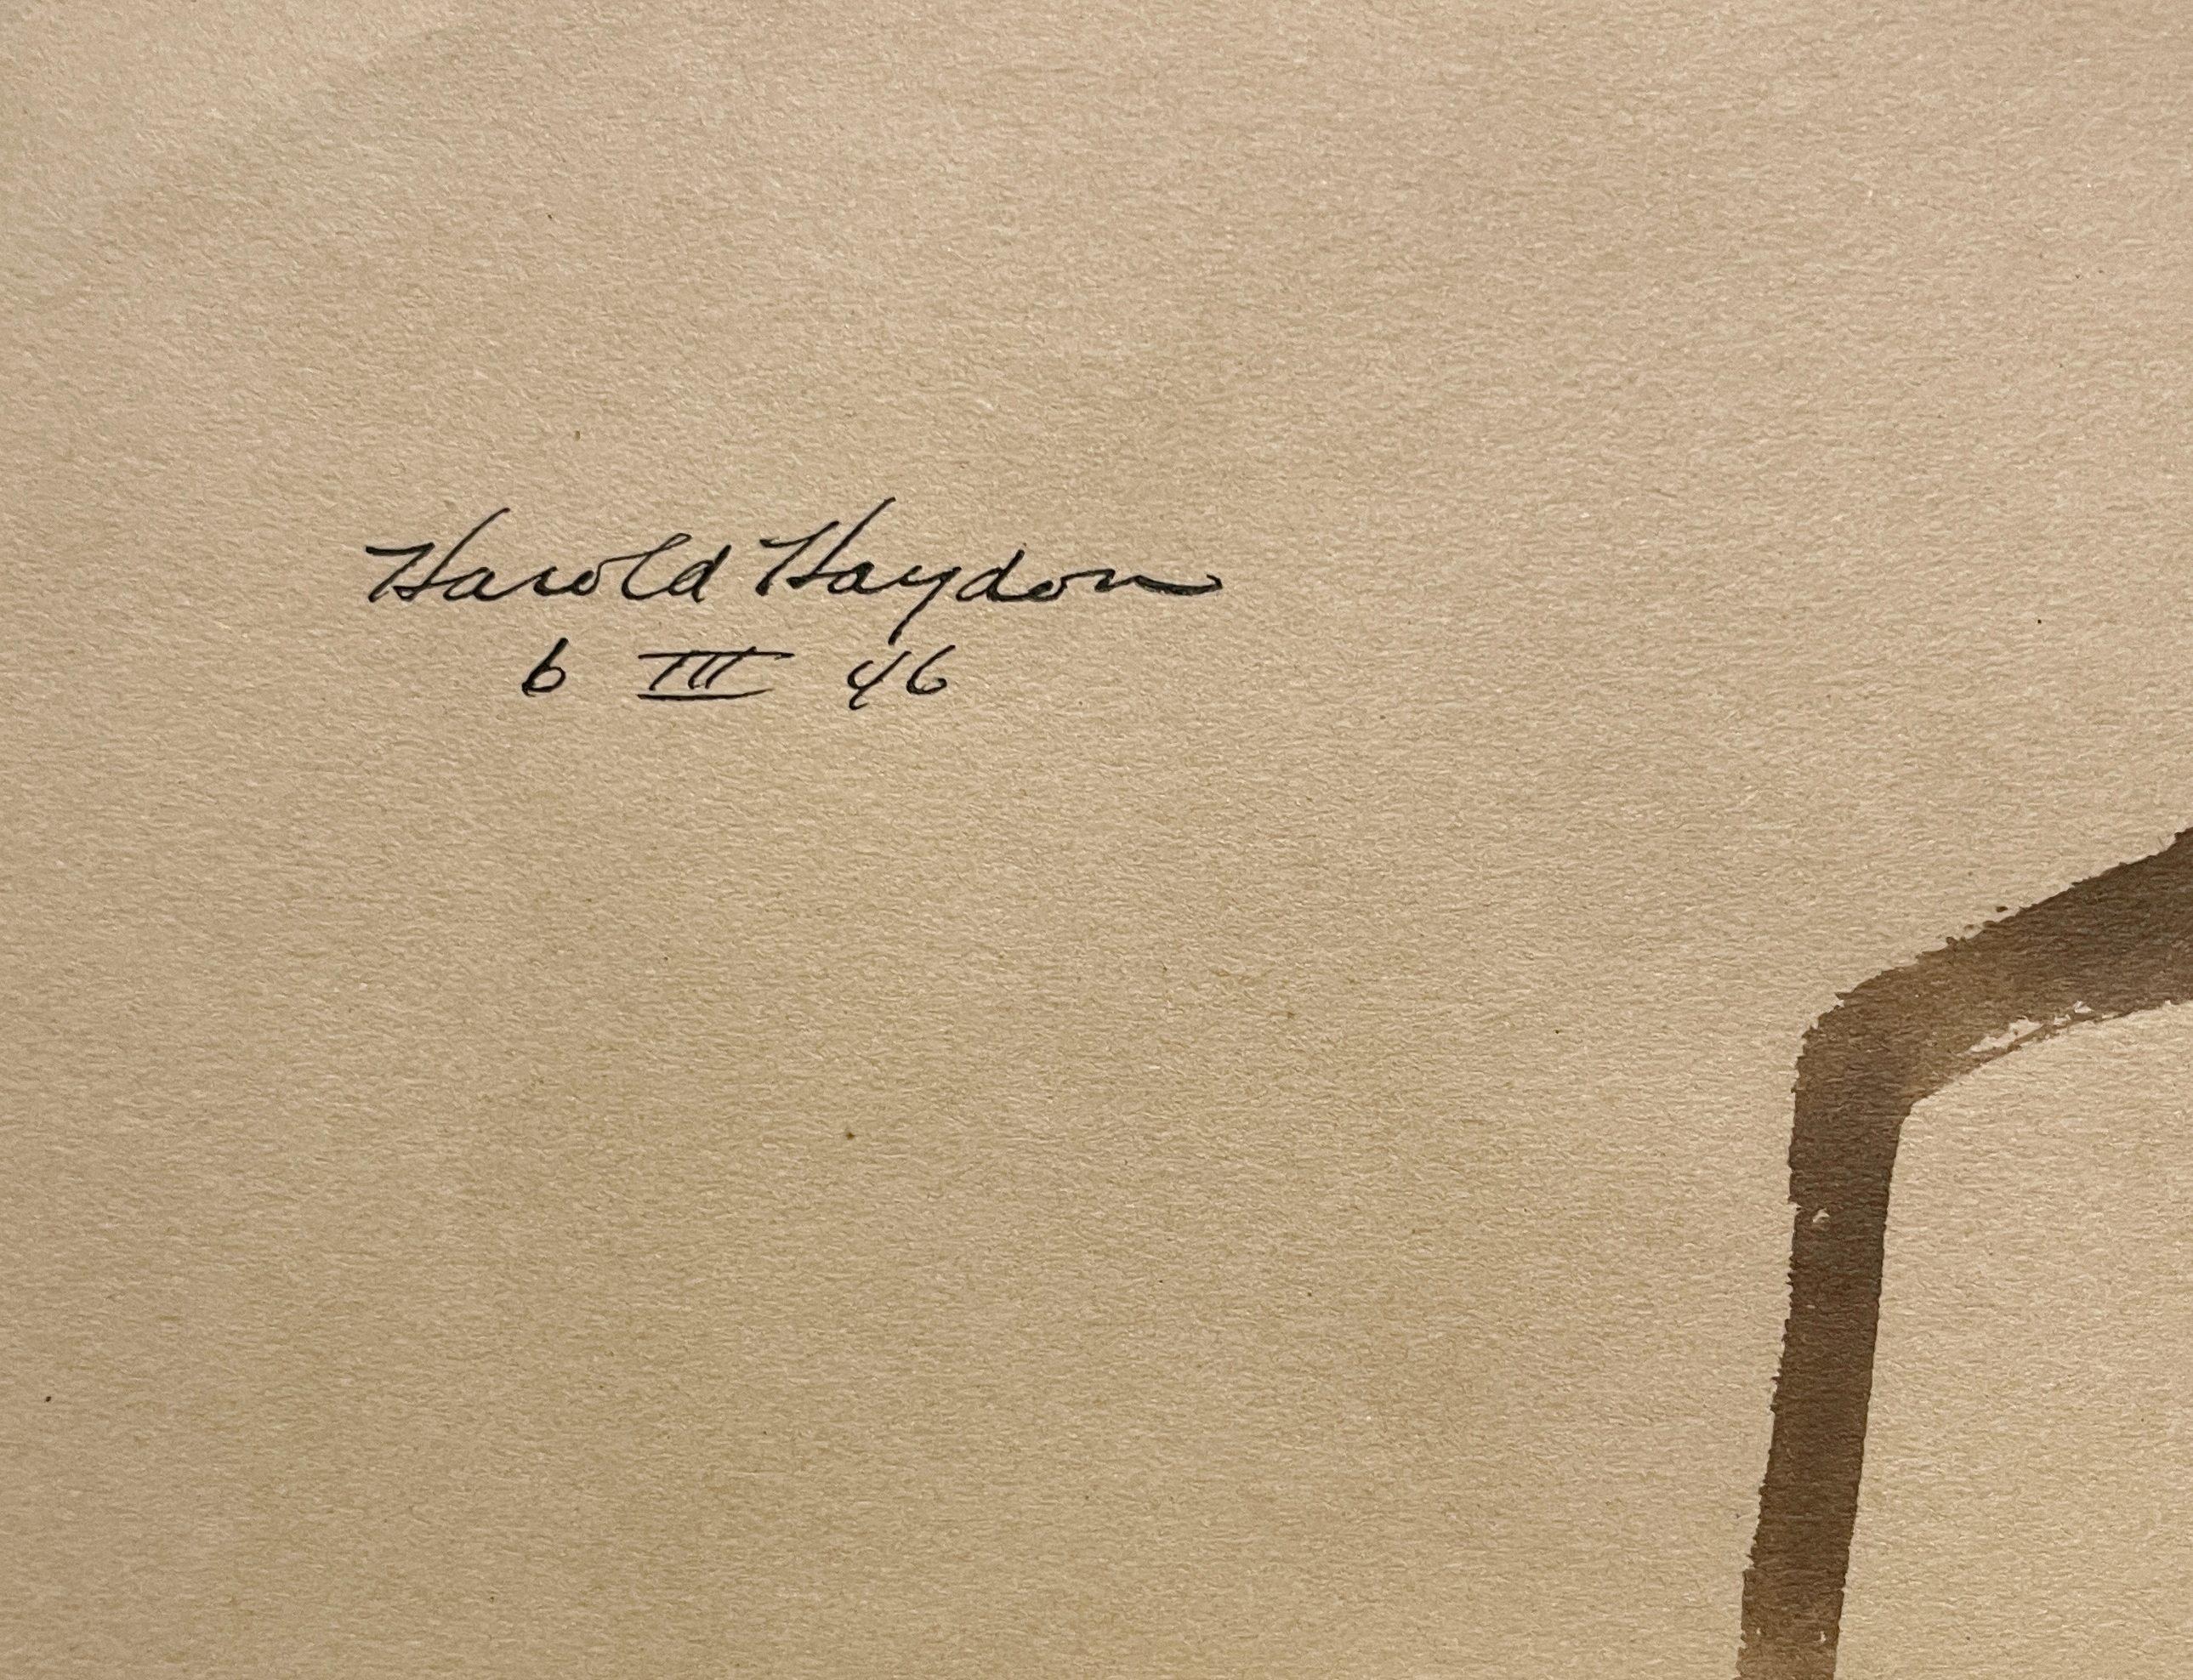 Harold Haydon
6 III 46